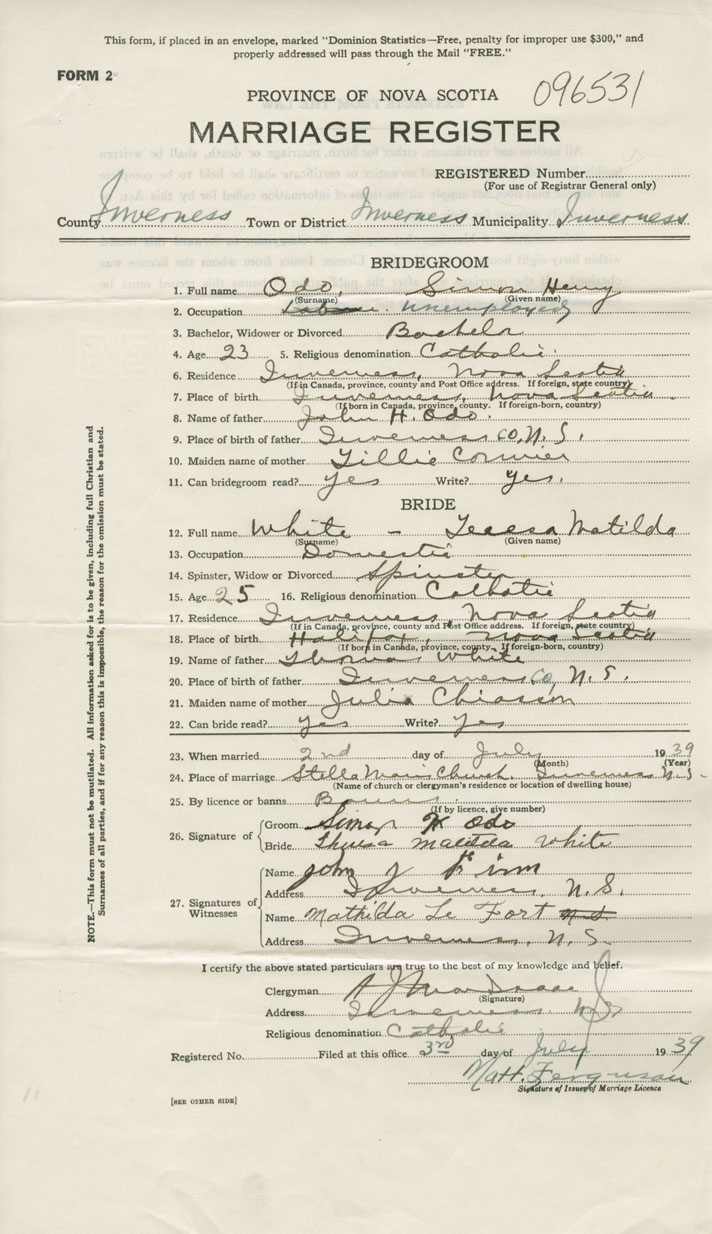 This form, if placed in an envelope, marked "Dominion Statistics—Free, penalty for improper use $300," and
properly addressed will pass through the Mail "FREE."
FORM 2
096531
PROVINCE OF NOVA SCOTIA
MARRIAGE REGISTER
REGISTERED Number
(For use of Registrar General only)
County Inverness Town or District Inverness Municipality Inverness
BRIDEGROOM
1. Full name Odo, Simon Henry
(Surname) (Given name)
2. Occupation Labour. Unemployed
3. Bachelor, Widower or Divorced Bachelor
4. Age 23 5. Religious denomination Catholic.
6. Residence Inverness, Nova Scotia
(If in Canada, province, county and Post Office address. If foreign, state country)
7. Place of birth Inverness, Nova Scotia.
(If born in Canada, province, county. If foreign-born, country)
8. Name of father John H. Odo.
9. Place of birth of father Inverness CO, N. S.
10. Maiden name of mother Tillie Cormier
11. Can bridegroom read? yes Write? yes.
BRIDE
12. Full name White - Teresa Matilda
(Surname) (Given name)
13. Occupation Domestic
14. Spinster, Widow or Divorced Spinster
15. Age 25 16. Religious denomination Catholic
17. Residence Inverness, Nova Scotia
(If in Canada, province, county and Post Office address. If foreign, state country)
18. Place of birth Halifax, Nova Scotia
(If born in Canada, province, county. If foreign-born, country)
19. Name of father Thomas White
20. Place of birth of father Inverness CO, N. S.
21. Maiden name of mother Julia Chiasson
22. Can bride read? yes Write? yes
23. When married 2nd day of July 1939
(Month) (Year)
24. Place of marriage Stella Maris Church. Inverness N.S.
(Name of church or clergyman's residence or location of dwelling house)
25. By licence or banns Banns
(If by licence, give number)
26. Signature of
Groom Simon H Odo
Bride Theresa Matilda White
27. Signatures of Witnesses
Name John J
Address Inverness, N.S.
Name Mathilda Le Fort N.S
Address Inverness, N. S.
I certify the above stated particulars are true to the best of my knowledge and belief.
Clergyman
(Signature)
Address Inverness N.S.
Religious denomination Catholic
Registered No. Filed at this office 3rd day of July 1939
Matt. Ferguson
Signature of Issuer of Marriage Licence
[SEE OTHER SIDE]
NOTE.—This form must not be mutilated. All information asked for is to be given, including full Christian and
Surnames of all parties, and if for any reason this is impossible, the reason for the omission must be stated.